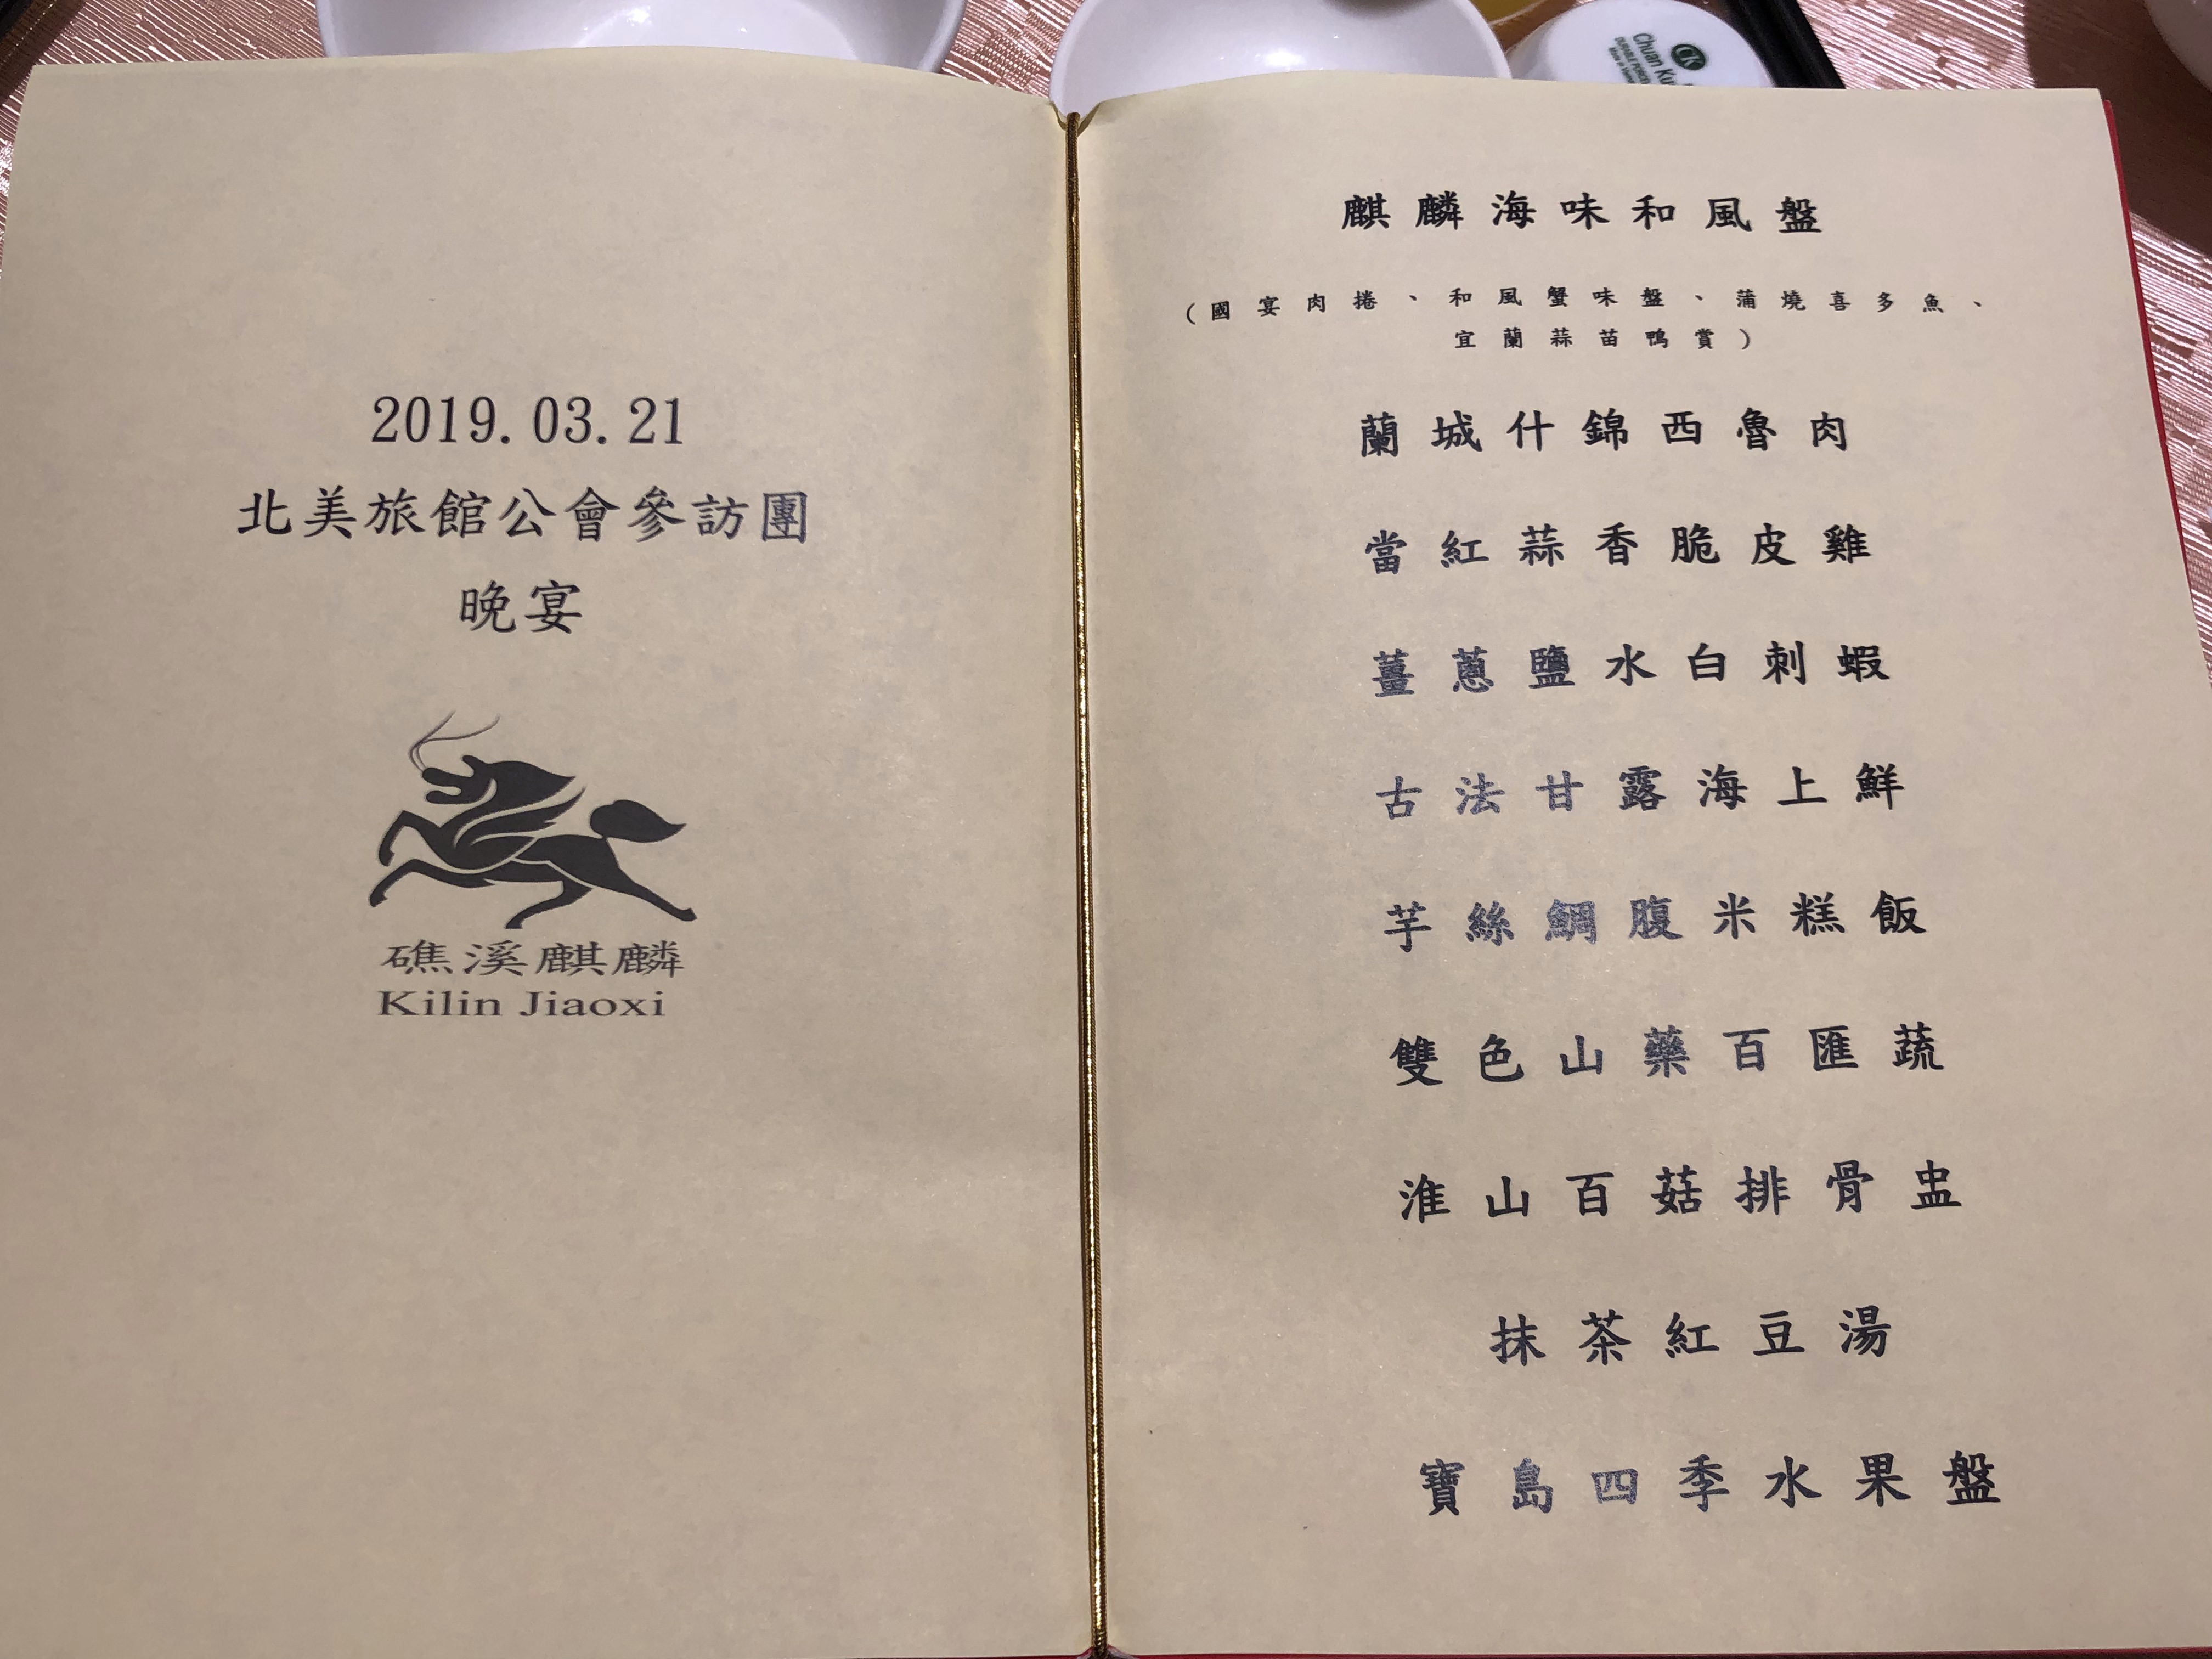 2019.03.21
北美旅館公會參訪團
晚宴
礁溪麒麟
Kilin Jiaoxi
麒麟海味和風盤
(國宴肉捲、和風蟹味盤、蒲燒喜多魚、
宜蘭蒜苗鴨賞)
蘭城什錦西魯肉
當紅蒜香脆皮雞
薑蔥鹽水白刺蝦
古法甘露海上鮮
芋絲鯛腹米糕飯
雙色山藥百匯蔬
淮山百菇排骨盅
抹茶紅豆湯
寶島四季水果盤
CK
Chuan Ku